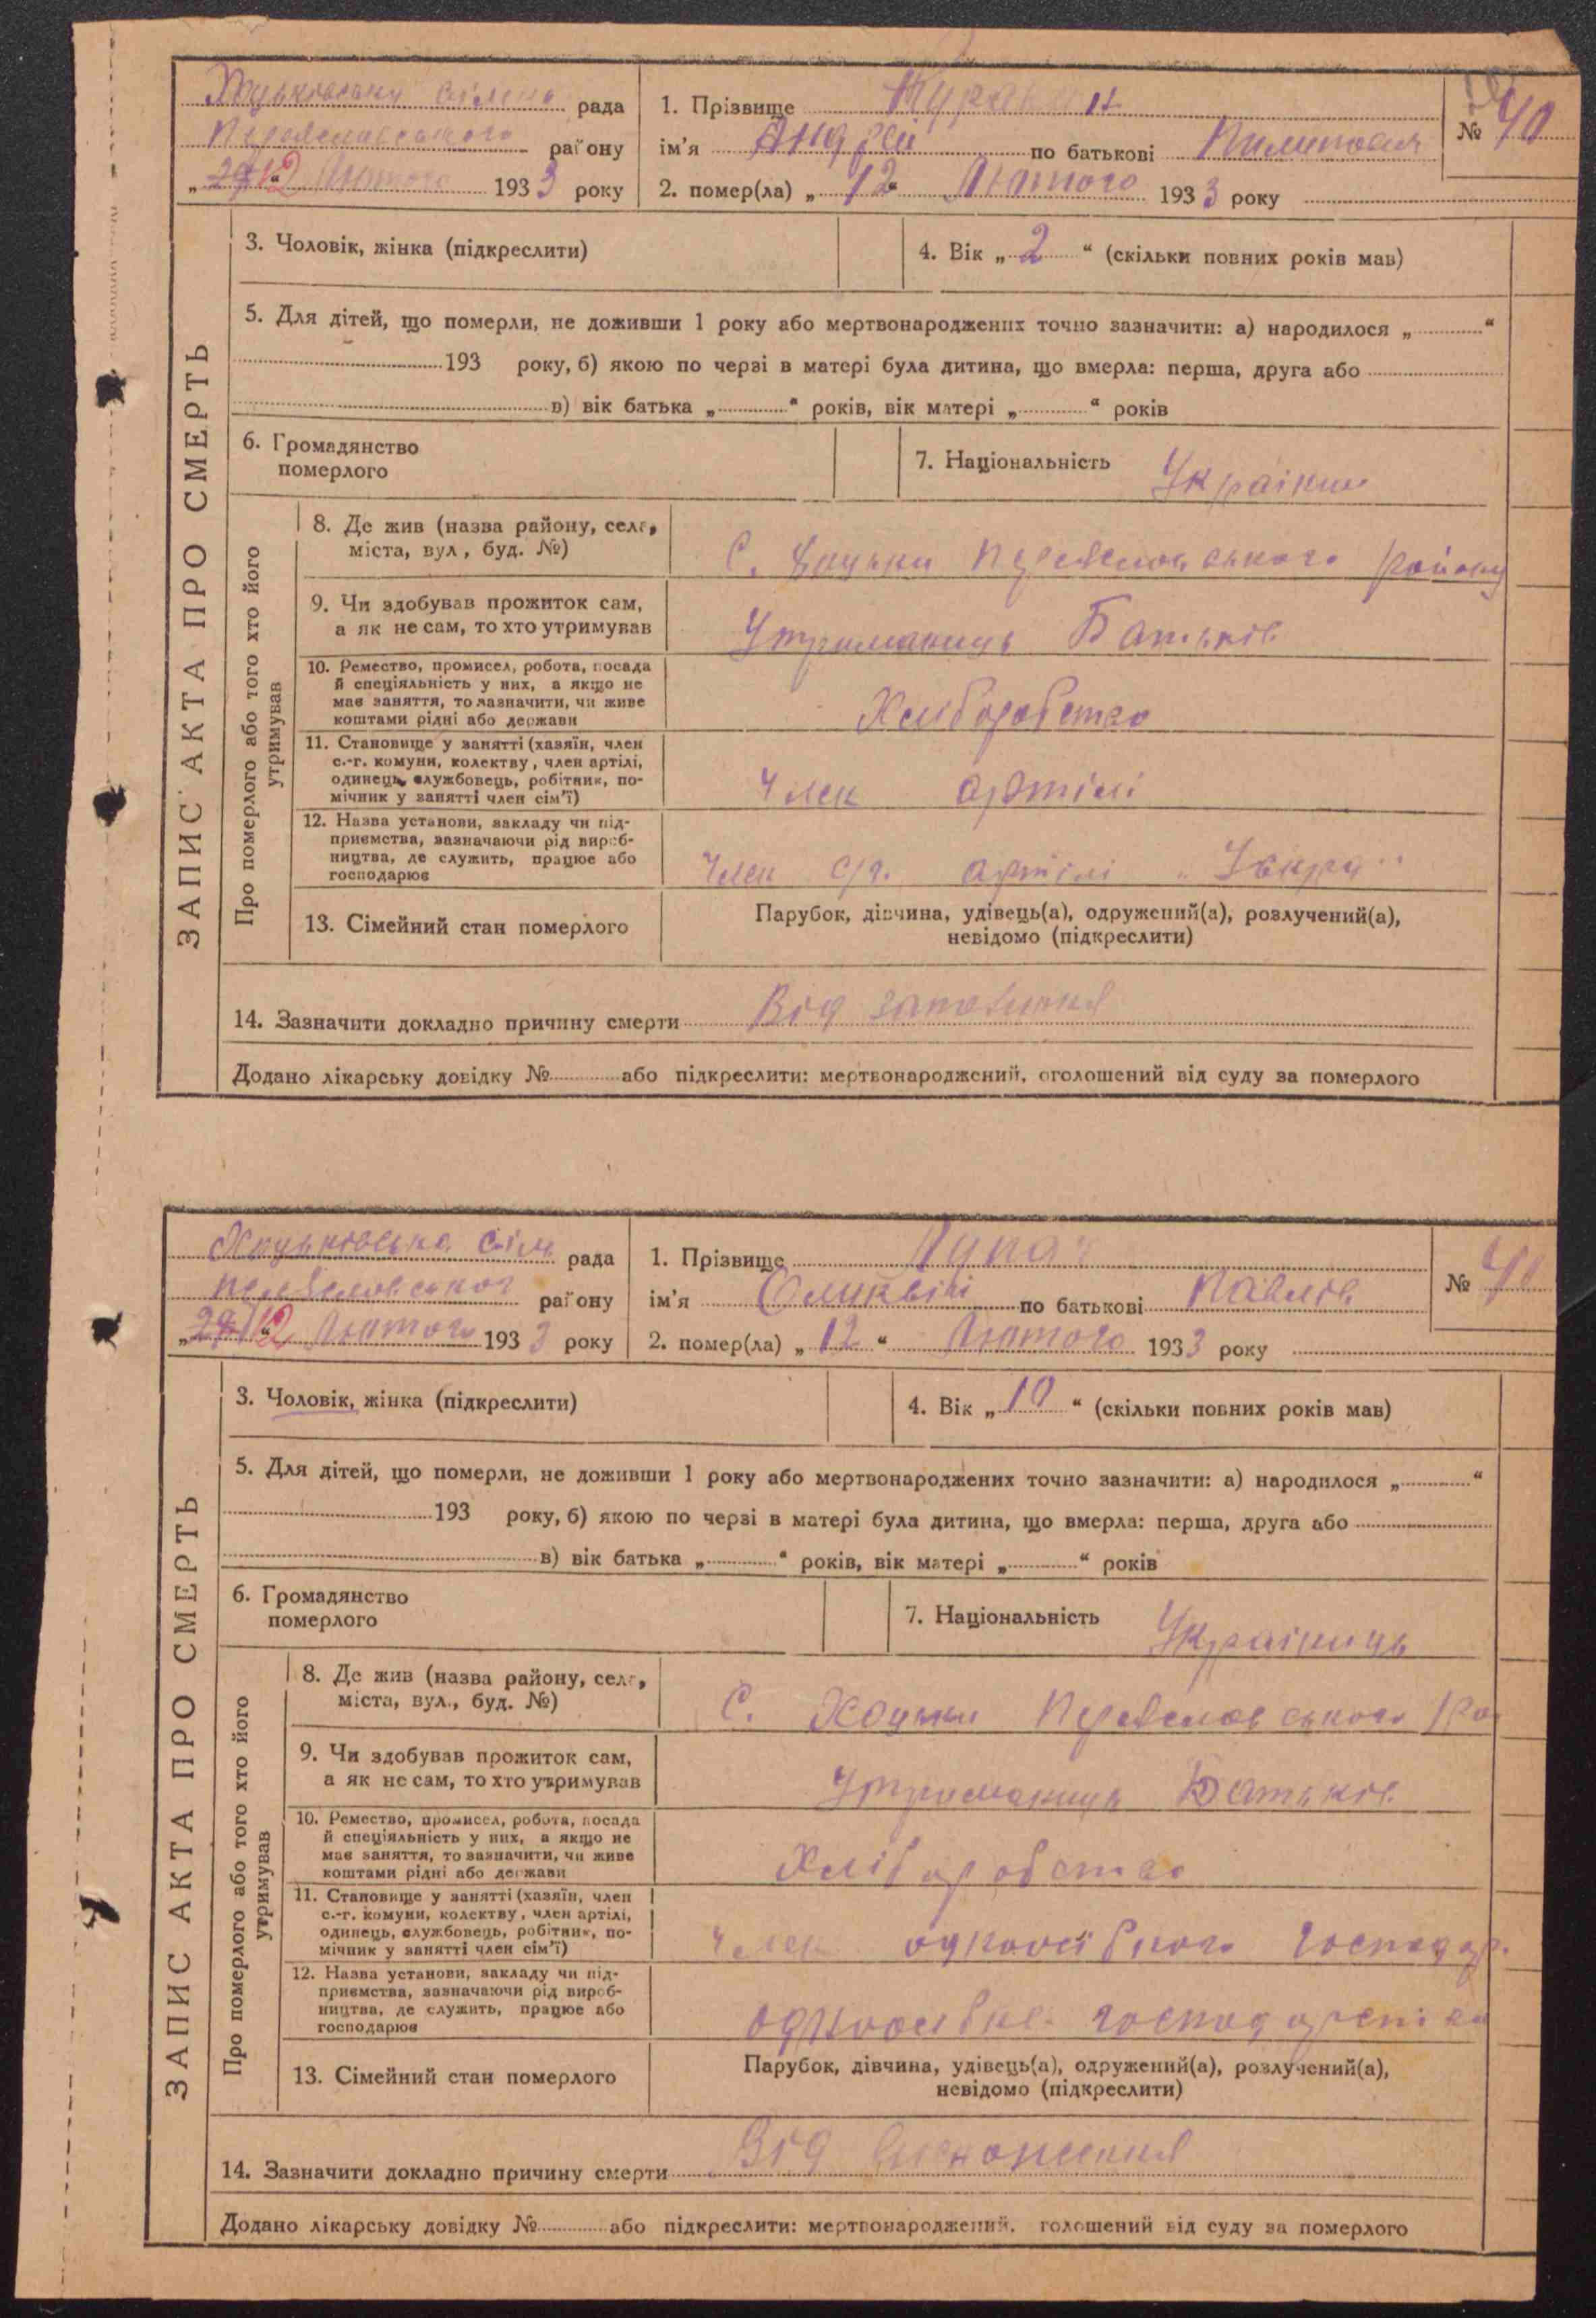 рада
району
12 Лютого 1933 року
1. Прізвище
ім'я Андрей по батькові Пилипович
2. помер(ла) „12“ Лютого 1933 року
№ 40
ЗАПИС АКТА ПРО СМЕРТЬ
3. Чоловік, жінка (підкреслити)
4. Вік „2“ (скільки повних років мав)
5. Для дітей, що померли, не доживши 1 року або мертвонароджених точно зазначити: а) народилося „ “
193 року, б) якою по черзі в матері була дитина, що вмерла: перша, друга або
в) вік батька „ “ років, вік матері „ “ років
6. Громадянство
померлого
7. Національність
Про померлого або того хто його
утримував
8. Де жив (назва району, села,
міста, вул, буд. №)
С. Хоцьки Переяславського району
9. Чи здобував прожиток сам,
а як не сам, то хто утримував
Утриманець Батьків
10. Ремество, промисел, робота, посада
й спеціяльність у них, а якщо не
має заняття, то зазначити, чи живе
коштами рідні або держави
Хліборобство
11. Становище у занятті (хазяїн, член
с.-г. комуни, колективу, член артілі,
одинець, службовець, робітник, по-
мічник у занятті член сім'ї)
Член артілі
12. Назва установи, закладу чи під-
приємства, зазначаючи рід вироб-
ництва, де служить, працює або
господарює
Член с/г. артілі
13. Сімейний стан померлого
Парубок, дівчина, удівець(а), одружений(а), розлучений(а),
невідомо (підкреслити)
14. Зазначити докладно причину смерти Від
Додано лікарську довідку № або підкреслити: мертвонароджений, оголошений від суду за померлого
Хоцьківська сіль рада
району
12 Лютого 1933 року
1. Прізвище
ім'я по батькові Павлів
2. помер(ла) „12“ Лютого 1933 року
№
ЗАПИС АКТА ПРО СМЕРТЬ
3. Чоловік, жінка (підкреслити)
4. Вік „10“ (скільки повних років мав)
5. Для дітей, що померли, не доживши 1 року або мертвонароджених точно зазначити: а) народилося „ “
193 року, б) якою по черзі в матері була дитина, що вмерла: перша, друга або
в) вік батька „ “ років, вік матері „ “ років
6. Громадянство
померлого
7. Національність Українець
Про померлого або того хто його
утримував
8. Де жив (назва району, села,
міста, вул., буд. №)
С. Хоцьки Переяславського
9. Чи здобував прожиток сам,
а як не сам, то хто утримував
Утриманець Батьків
10. Ремество, промисел, робота, посада
й спеціяльність у них, а якщо не
має заняття, то зазначити, чи живе
коштами рідні або держави
Хліборобство
11. Становище у занятті (хазяїн, член
с.-г. комуни, колективу, член артілі,
одинець, службовець, робітник, по-
мічник у занятті член сім'ї)
Член одноосібного господар.
12. Назва установи, закладу чи під-
приємства, зазначаючи рід вироб-
ництва, де служить, працює або
господарює
13. Сімейний стан померлого
Парубок, дівчина, удівець(а), одружений(а), розлучений(а),
невідомо (підкреслити)
14. Зазначити докладно причину смерти Від виснаження
Додано лікарську довідку № або підкреслити: мертвонароджений, голошений від суду за померлого